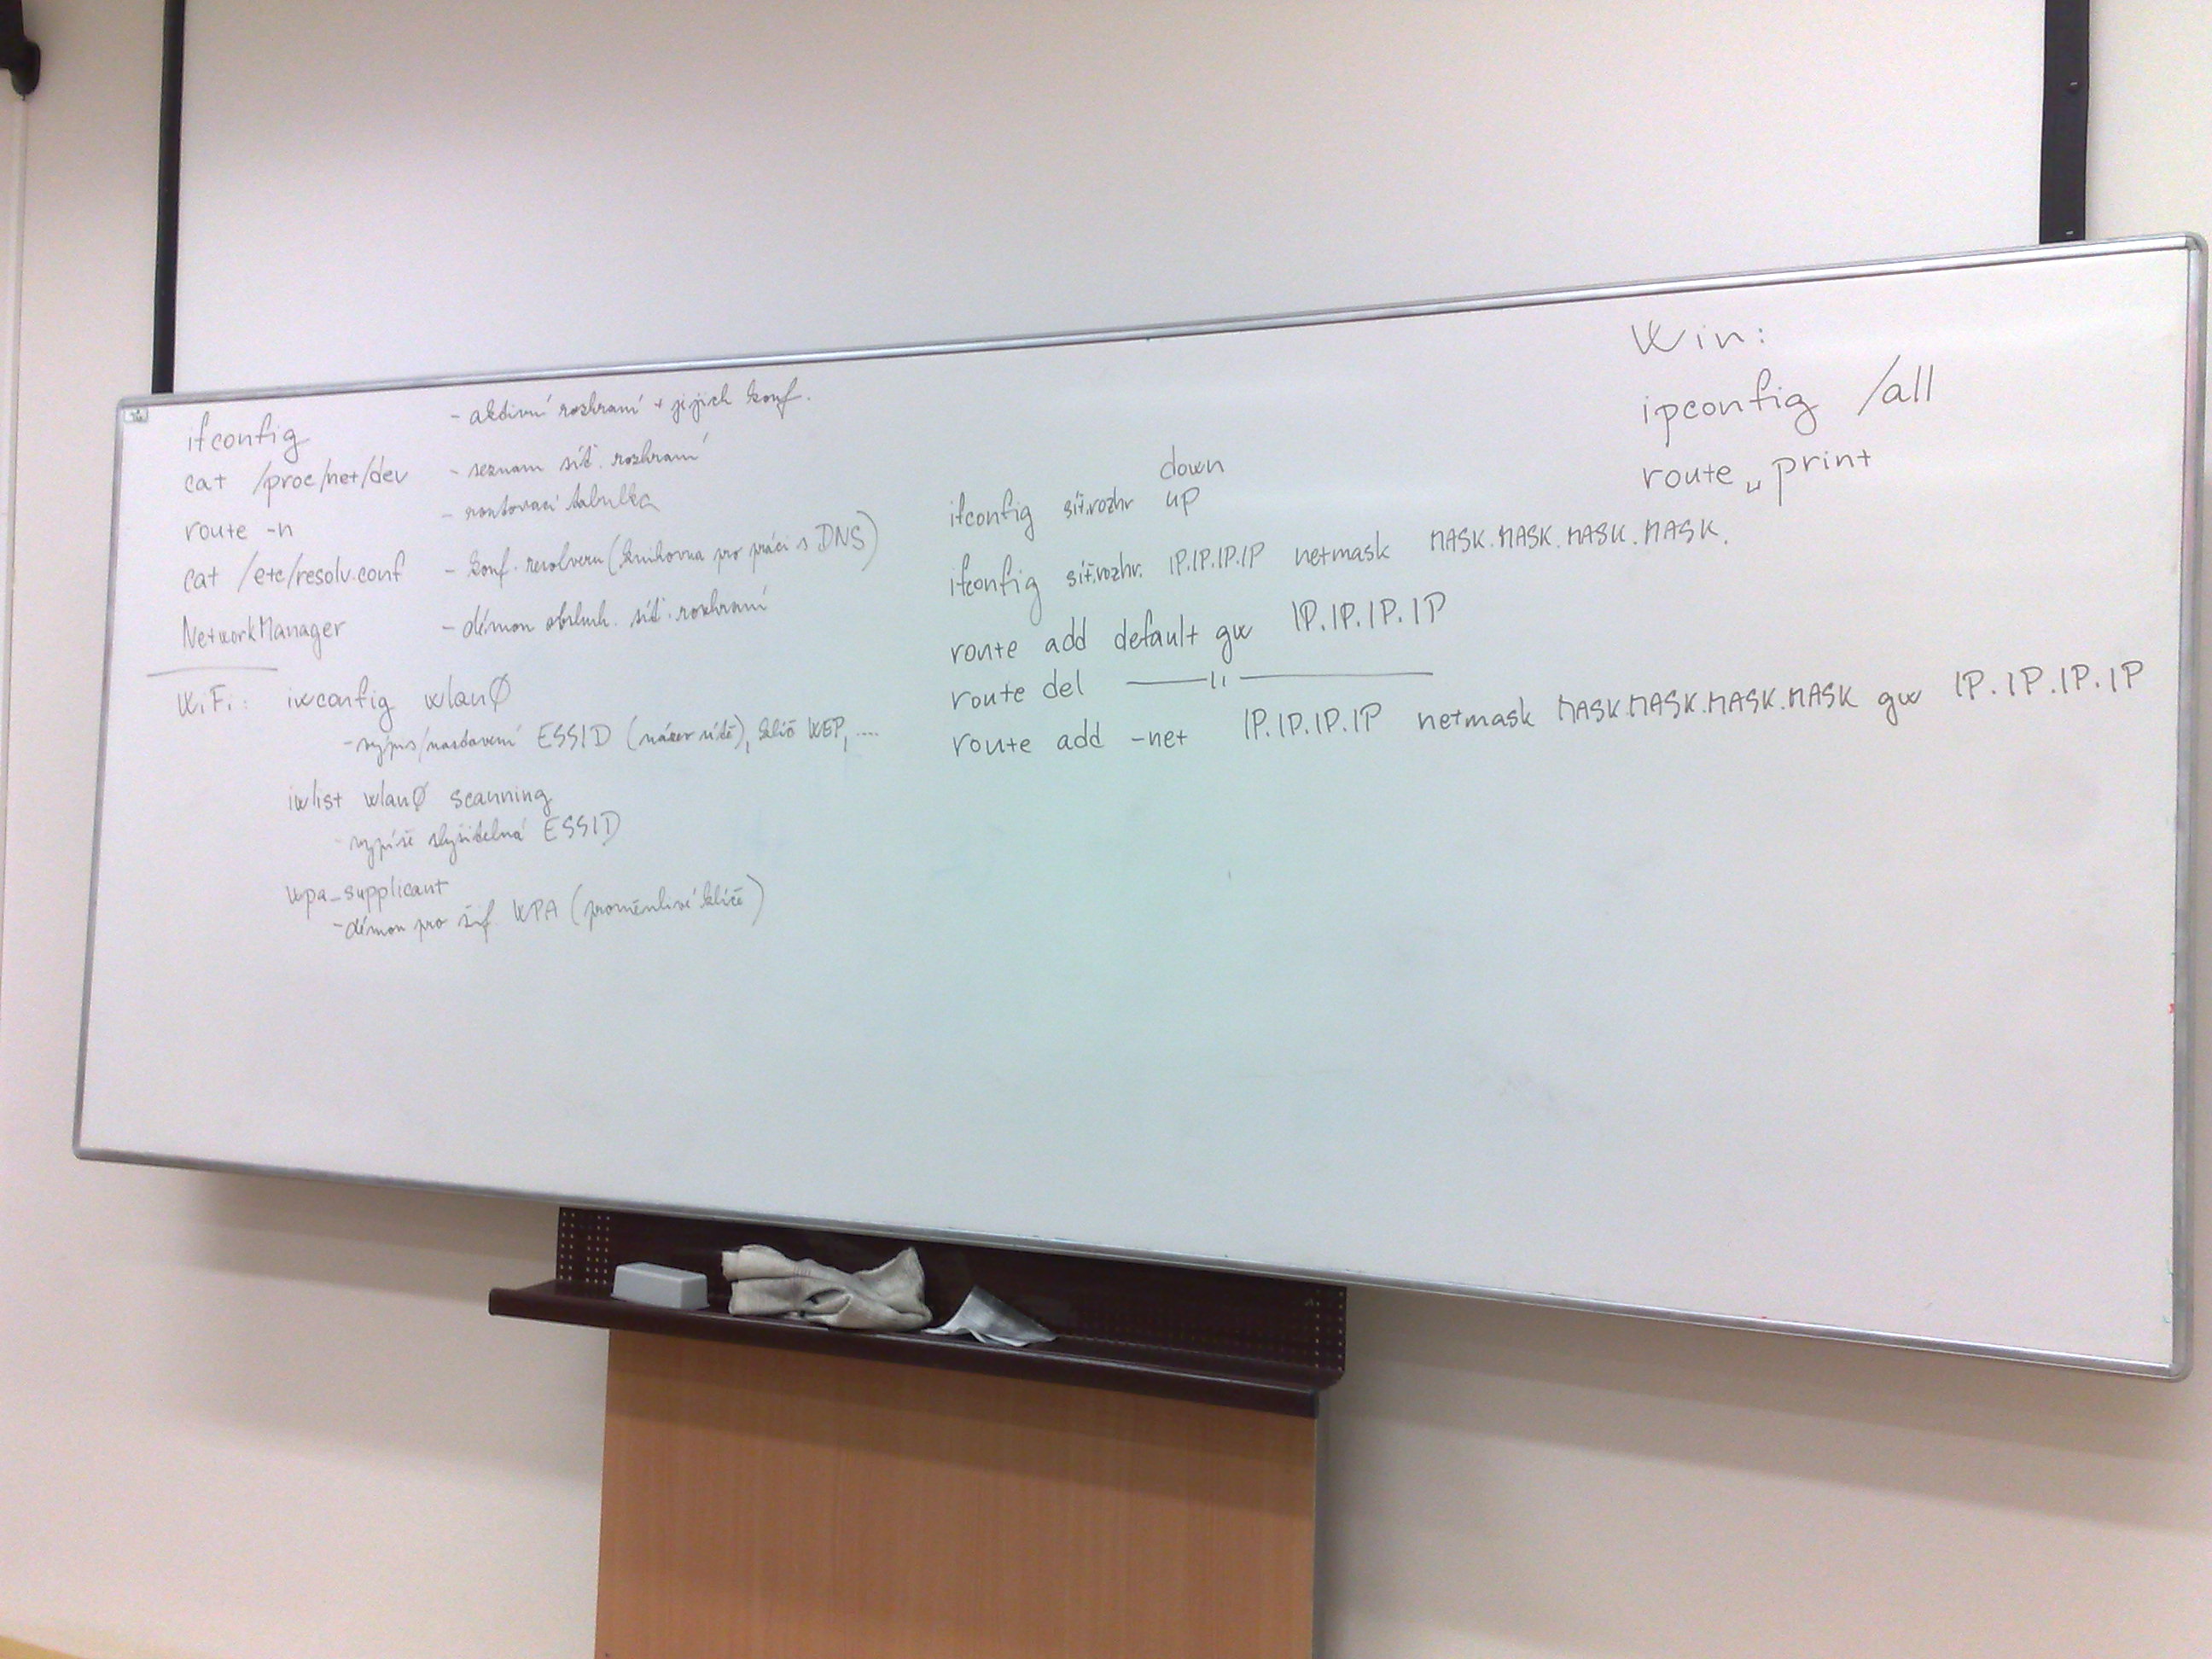 ifconfig - aktivní rozhraní + jejich konf.
cat /proc/net/dev - seznam síť. rozhraní
route -n - routovací tabulka
cat /etc/resolv.conf - konf. resolveru (knihovna pro práci s DNS)
NetworkManager - démon obsluh. síť. rozhraní
WiFi: iwconfig wlan0
- výpis/nastavení ESSID (název sítě), klíč WEP, ....
iwlist wlan0 scanning
- vypíše slyšitelná ESSID
wpa_supplicant
- démon pro šif. WPA (proměnlivé klíče)
down
ifconfig síť.rozhr up
ifconfig síť.rozhr. IP.IP.IP.IP netmask MASK.MASK.MASK.MASK.
route add default gw IP.IP.IP.IP
route del —— " ——
route add -net IP.IP.IP.IP netmask MASK.MASK.MASK.MASK gw IP.IP.IP.IP
Win:
ipconfig /all
route ␣ print